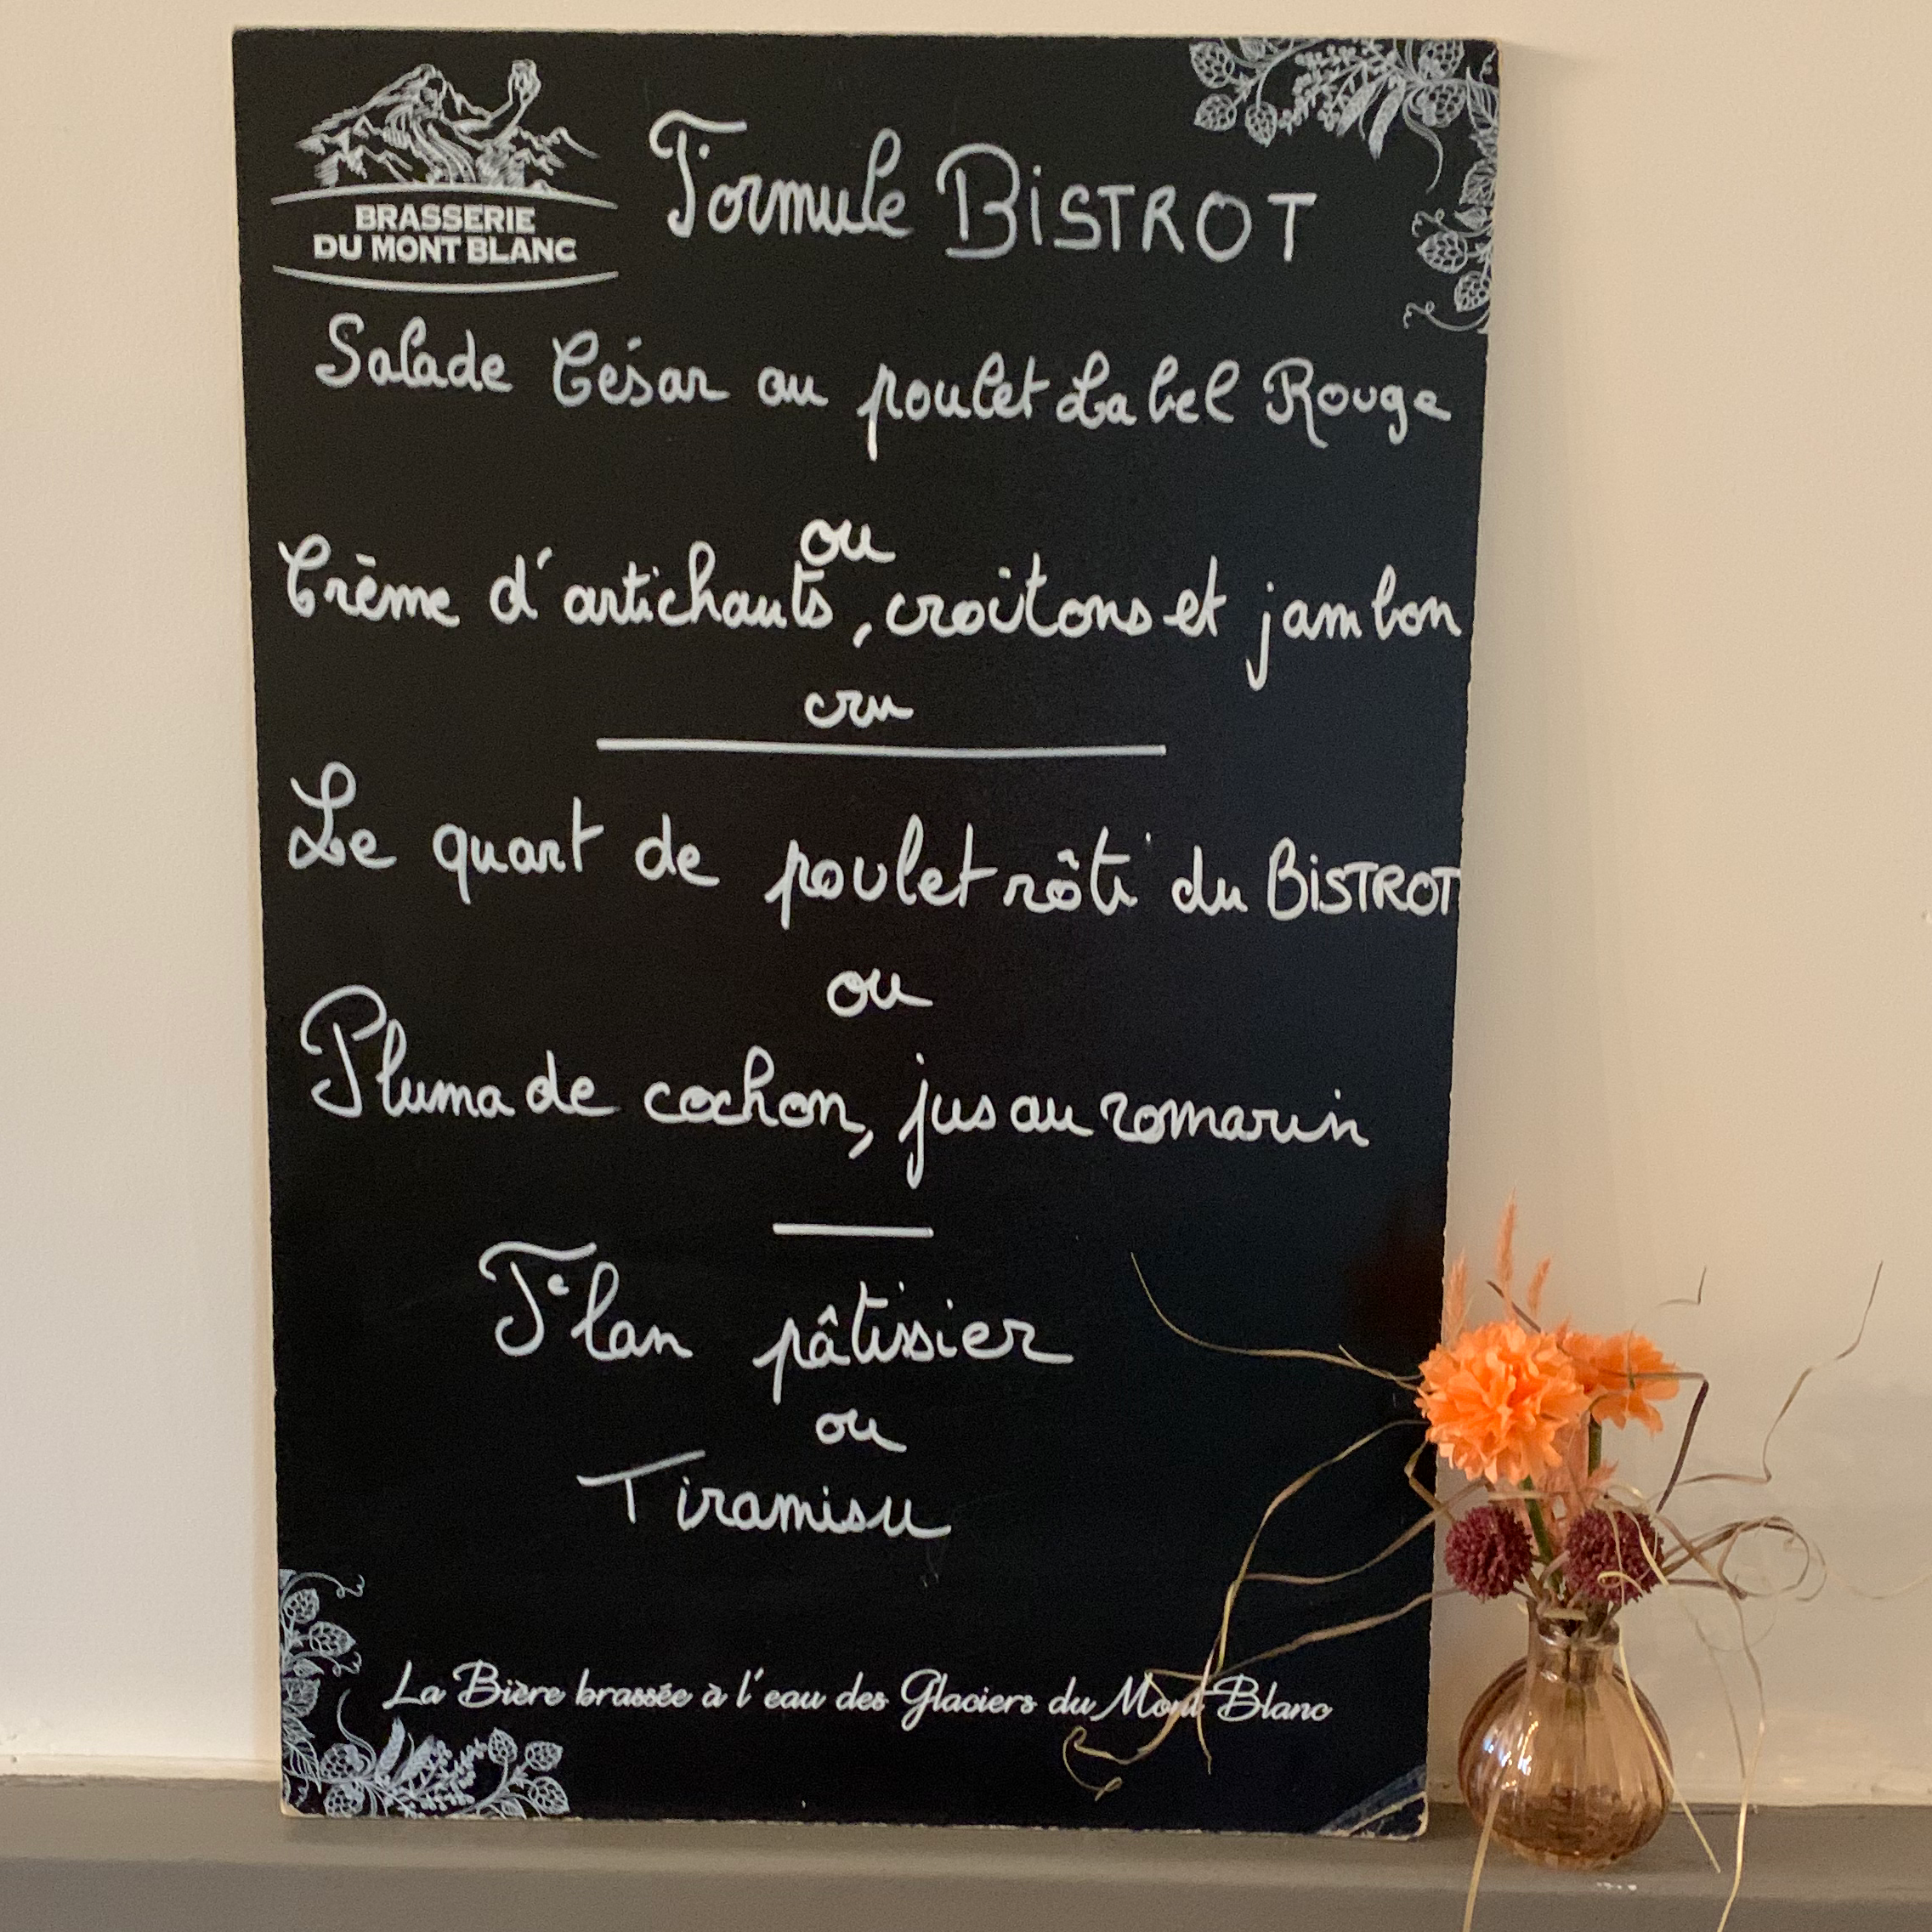 BRASSERIE
DU MONT BLANC
Formule BiSTROT
Salade César au poulet Label Rouge
ou
Crème d'artichauts, croûtons et jambon
cru
Le quart de poulet rôti du BiSTROT
ou
Pluma de cochon, jus au romarin
Flan pâtissier
ou
Tiramisu
La Bière brassée à l'eau des Glaciers du Mont Blanc